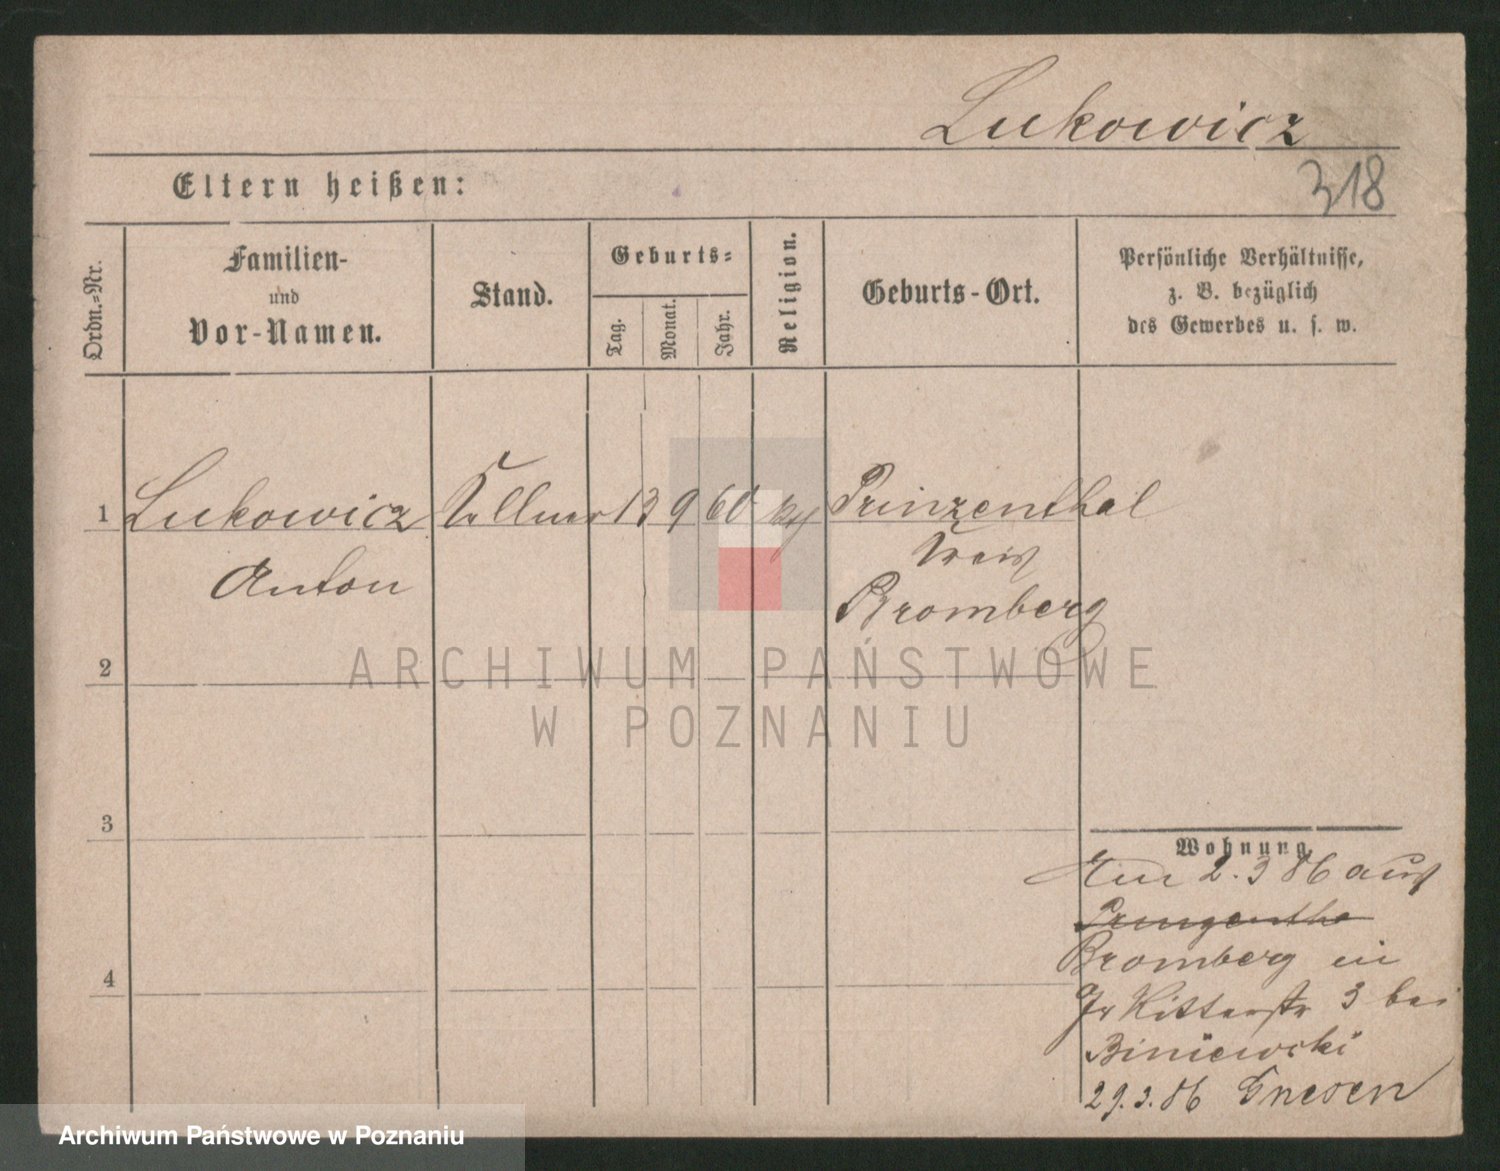 Lukowicz
318
Eltern heißen:
Ordn.=Nr.
Familien-
und
Vor-Namen.
Stand.
Geburts=
Tag.
Monat.
Jahr.
Religion.
Geburts-Ort.
Persönliche Verhältnisse,
z. B. bezüglich
des Gewerbes u. s. w.
1 Lukowicz Kellner 13 9 60 kth Prinzenthal
Anton Kreis
Bromberg
2
ARCHIWUM PAŃSTWOWE
W POZNANIU
3
4
Wohnung
2. 3 86 aus
Prinzentha
Bromberg in
Gr Ritterstr 3 bei
Biniewski
29.3.86 Gnesen
Archiwum Państwowe w Poznaniu